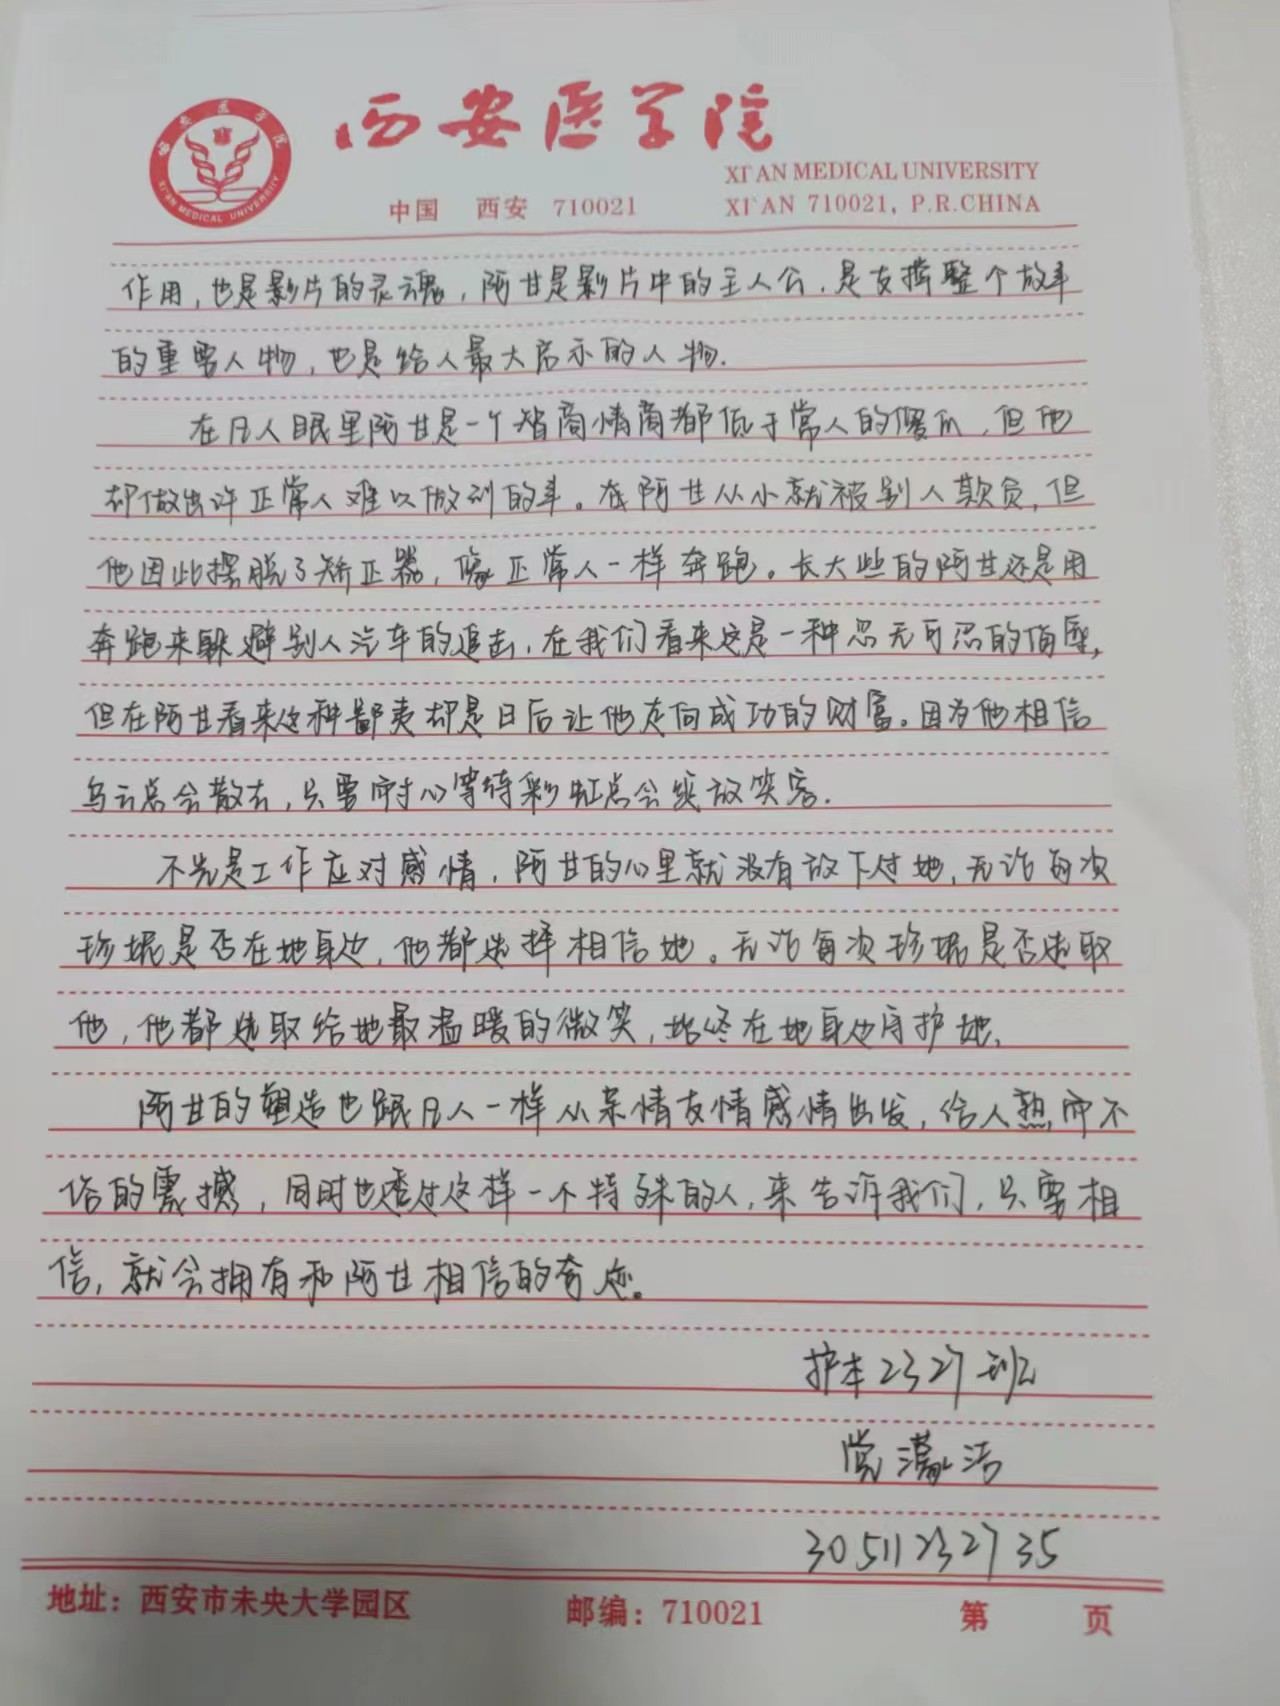 西安医学院
XI'AN MEDICAL UNIVERSITY
中国 西安 710021
XI`AN 710021, P.R.CHINA
西安医学院
XI'AN MEDICAL UNIVERSITY
作用，也是影片的灵魂，阿甘是影片中的主人公，是支撑整个故事
的重要人物，也是给人最大启示的人物.
在凡人眼里阿甘是一个智商情商都低于常人的傻瓜，但他
却做出许正常人难以做到的事。在阿甘从小就被别人欺负，但
他因此摆脱了矫正器，像正常人一样奔跑。长大些的阿甘还是用
奔跑来躲避别人汽车的追击，在我们看来这是一种忍无可忍的侮辱，
但在阿甘看来这种鄙夷却是日后让他走向成功的财富。因为他相信
乌云总会散去，只要耐心等待彩虹总会绽放笑容.
不光是工作应对感情，阿甘的心里就没有放下过她，无论每次
珍妮是否在她身边，他都选择相信她。无论每次珍妮是否选取
他，他都选取给她最温暖的微笑，始终在她身边守护她.
阿甘的塑造也跟凡人一样从亲情友情感情出发，给人熟而不
俗的震撼，同时也透过这样一个特殊的人，来告诉我们，只要相
信，就会拥有和阿甘相信的奇迹。
护本2327班
党潇洁
30511232735
地址：西安市未央大学园区 邮编：710021 第 页